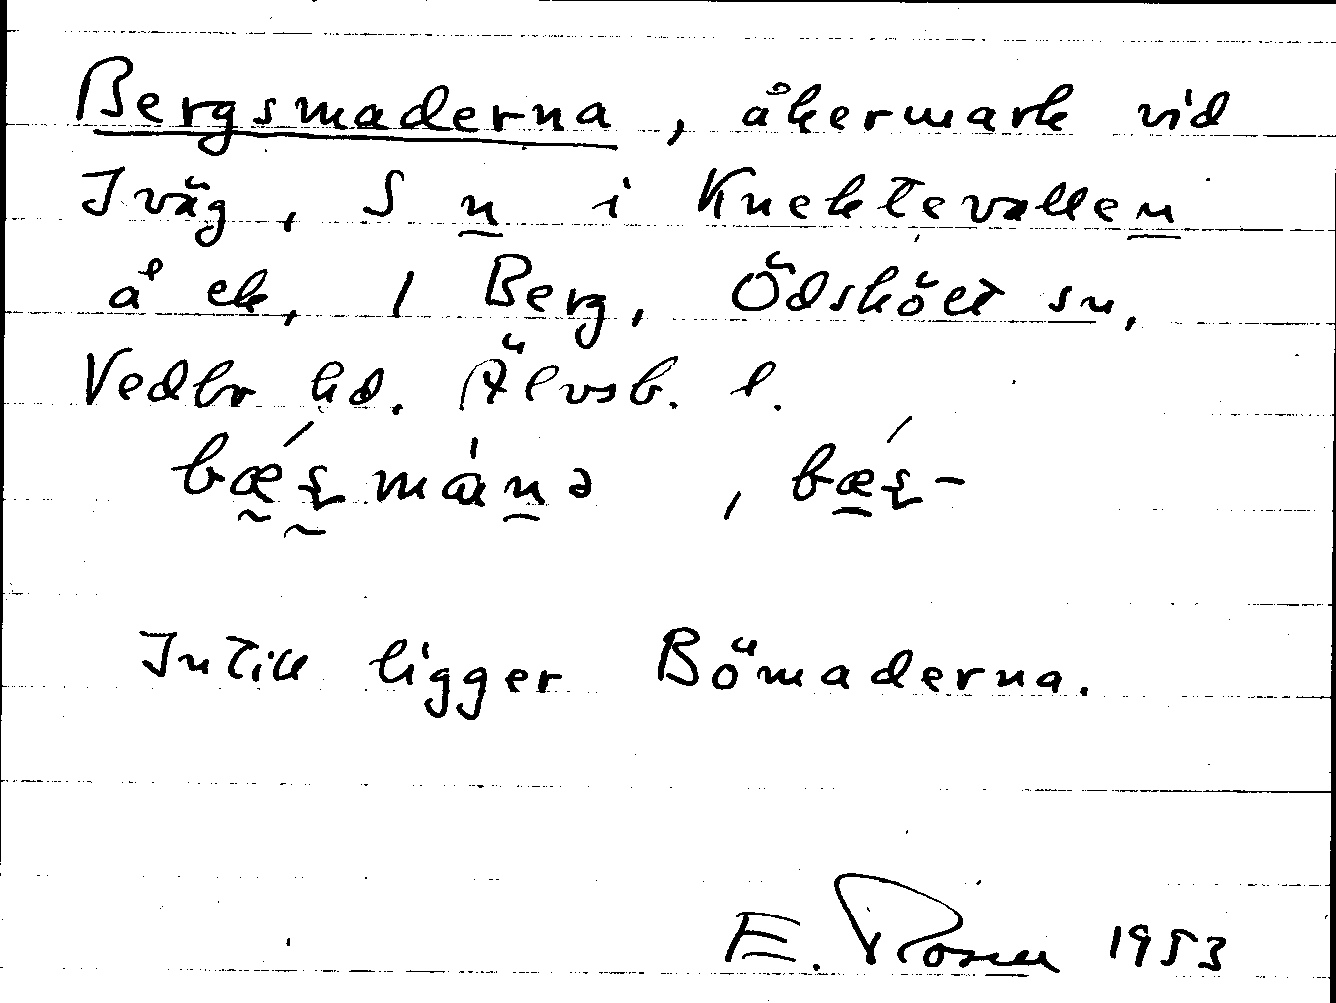 Bergsmaderna, åkermark vid
Iväg, S n i Knektevallen
å ek, 1 Berg, Ödskölt sn,
Vedbo hd. Älvsb. l.
, bæş-
Intill ligger Bömaderna.
E. Rosen 1953